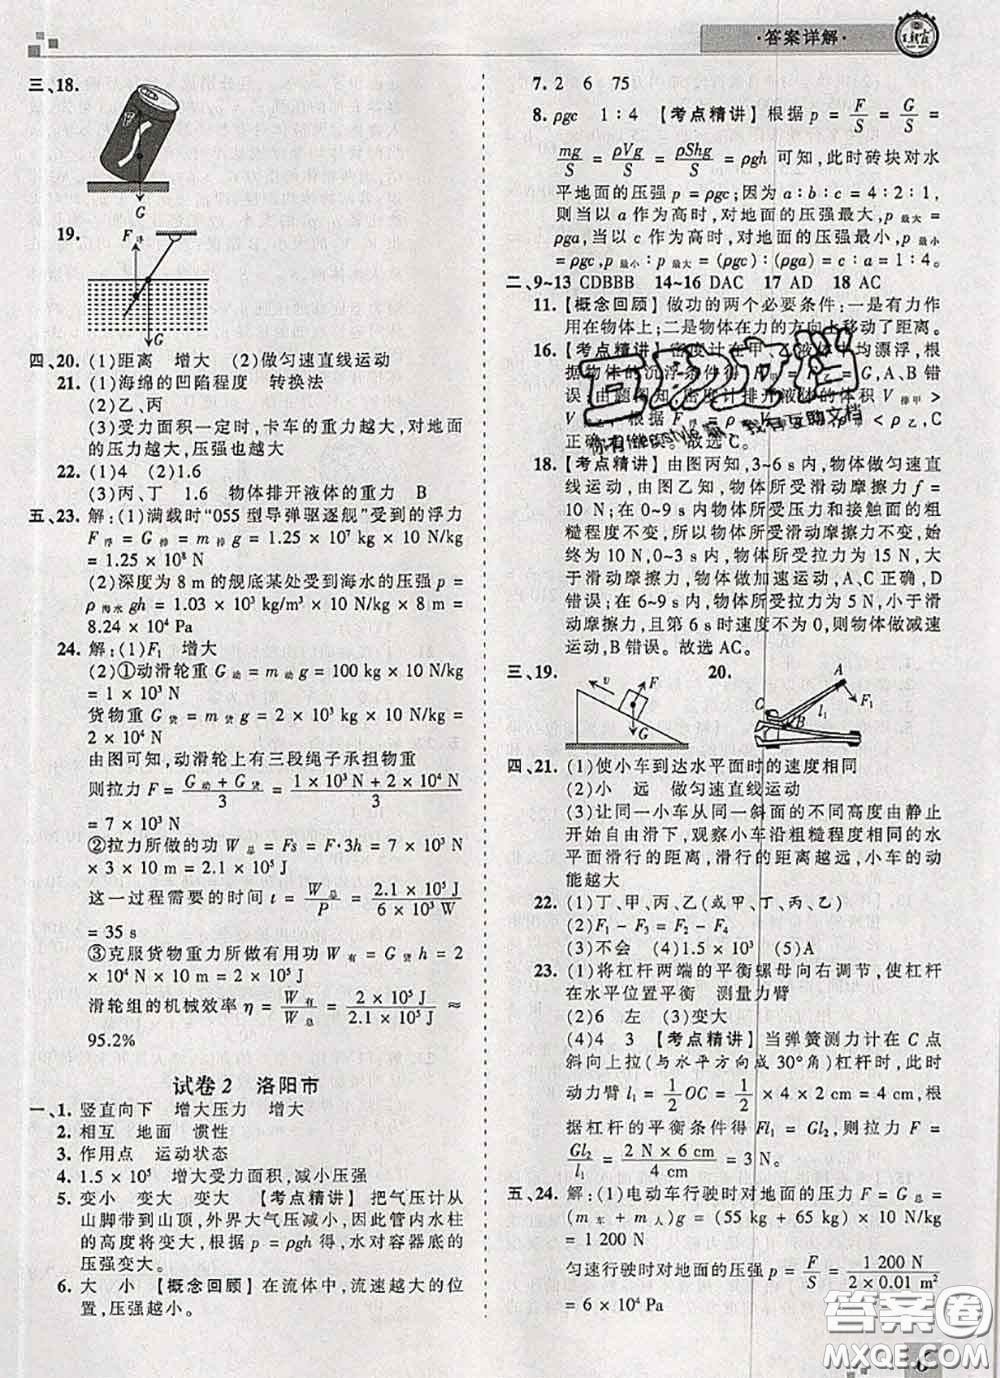 ·答案详解·
三、18.
G
19.
F浮
G
四、20. (1)距离 增大 (2)做匀速直线运动
21. (1)海绵的凹陷程度 转换法
(2)乙、丙
(3)受力面积一定时,卡车的重力越大,对地面
的压力越大,压强也越大
22. (1)4 (2)1.6
(3)丙、丁 1.6 物体排开液体的重力 B
五、23. 解:(1)满载时“055 型导弹驱逐舰”受到的浮力
F浮 = G排 = m排 g = 1.25 × 10⁷ kg × 10 N/kg
= 1.25 × 10⁸ N
(2)深度为 8 m 的舰底某处受到海水的压强 p =
ρ海水 gh = 1.03 × 10³ kg/m³ × 10 N/kg × 8 m =
8.24 × 10⁴ Pa
24. 解:(1)F₁ 增大
(2)①动滑轮重 G动 = m动 g = 100 kg × 10 N/kg
= 1 × 10³ N
货物重 G货 = m货 g = 2 × 10³ kg × 10 N/kg =
2 × 10⁴ N
由图可知,动滑轮上有三段绳子承担物重
则拉力 F = (G动 + G货)/3 = (1 × 10³ N + 2 × 10⁴ N)/3
= 7 × 10³ N
②拉力所做的功 W总 = Fs = F·3h = 7 × 10³ N
× 3 × 10 m = 2.1 × 10⁵ J
这一过程需要的时间 t = W总/P = (2.1 × 10⁵ J)/(6 × 10³ W)
= 35 s
③克服货物重力所做有用功 W有 = G货 h = 2 ×
10⁴ N × 10 m = 2 × 10⁵ J
滑轮组的机械效率 η = W有/W总 = (2 × 10⁵ J)/(2.1 × 10⁵ J) ≈
95.2%
试卷2 洛阳市
一、1. 竖直向下 增大压力 增大
2. 相互 地面 惯性
3. 作用点 运动状态
4. 1.5 × 10⁵ 增大受力面积,减小压强
5. 变小 变大 变大 【考点精讲】把气压计从
山脚带到山顶,外界大气压减小,因此管内水柱
的高度将变大,根据 p = ρgh 得,水对容器底的
压强变大。
6. 大 小 【概念回顾】在流体中,流速越大的位
置,压强越小。
7. 2 6 75
8. ρgc 1∶4 【考点精讲】根据 p = F/S = G/S =
mg/S = ρVg/S = ρShg/S = ρgh 可知,此时砖块对水
平地面的压强 p = ρgc;因为 a∶b∶c = 4∶2∶1,
则当以 a 作为高时,对地面的压强最大,p最大 =
ρga,当以 c 作为高时,对地面的压强最小,p最小 =
ρgc,p最小∶p最大 = (ρgc)∶(ρga) = c∶a = 1∶4。
二、9~13 CDBBB 14~16 DAC 17 AD 18 AC
11. 【概念回顾】做功的两个必要条件:一是有力作
用在物体上;二是物体在力的方向上移动了距离。
16. 【考点精讲】密度计在甲、乙液体中均漂浮,根
据物体的沉浮条件得 G,A、B 错
误;由题图知,密度计排开液体的体积 V排甲 >
V 根据 F 得 < ρ乙,D 错误,C
正确。故选 C。
18. 【考点精讲】由图丙知,3~6 s 内,物体做匀速直
线运动,由图乙知,物体所受滑动摩擦力 f =
10 N;在 0~9 s 内,物体所受压力和接触面的粗
糙程度不变,所以物体所受滑动摩擦力不变,
始终为 10 N,0~3 s 内,物体所受拉力为 15 N,大
于滑动摩擦力,物体做加速运动,A、C 正确,D
错误;在 6~9 s 内,物体所受拉力为 5 N,小于滑
动摩擦力,且第 6 s 时速度不为 0,则物体做减速
运动,B 错误。故选 AC。
三、19. v F G 20. A C F₁ l₁ B
四、21. (1)使小车到达水平面时的速度相同
(2)小 远 做匀速直线运动
(3)让同一小车从同一斜面的不同高度由静止
开始自由滑下,观察小车沿粗糙程度相同的水
平面滑行的距离,滑行的距离越远,小车的动
能越大
22. (1)丁、甲、丙、乙(或甲、丁、丙、乙)
(2)F₁ - F₃ = F₂ - F₄
(3)不会 (4)1.5 × 10³ (5)A
23. (1)将杠杆两端的平衡螺母向右调节,使杠杆
在水平位置平衡 测量力臂
(2)6 左 (3)变大
(4)4 3 【考点精讲】当弹簧测力计在 C 点
斜向上拉(与水平方向成 30°角)杠杆时,此时
动力臂 l₁ = 1/2 OC = 1/2 × 4 × 2 cm = 4 cm,根
据杠杆的平衡条件得 Fl₁ = Gl₂,则拉力 F =
Gl₂/l₁ = (2 N × 6 cm)/(4 cm) = 3 N。
五、24. 解:(1)电动车行驶时对地面的压力 F = G总 =
(m车 + m人)g = (55 kg + 65 kg) × 10 N/kg =
1 200 N
匀速行驶时对地面的压强 p = F/S = (1 200 N)/(2 × 0.01 m²)
= 6 × 10⁴ Pa
互助文档
答案圈
MXQE.COM